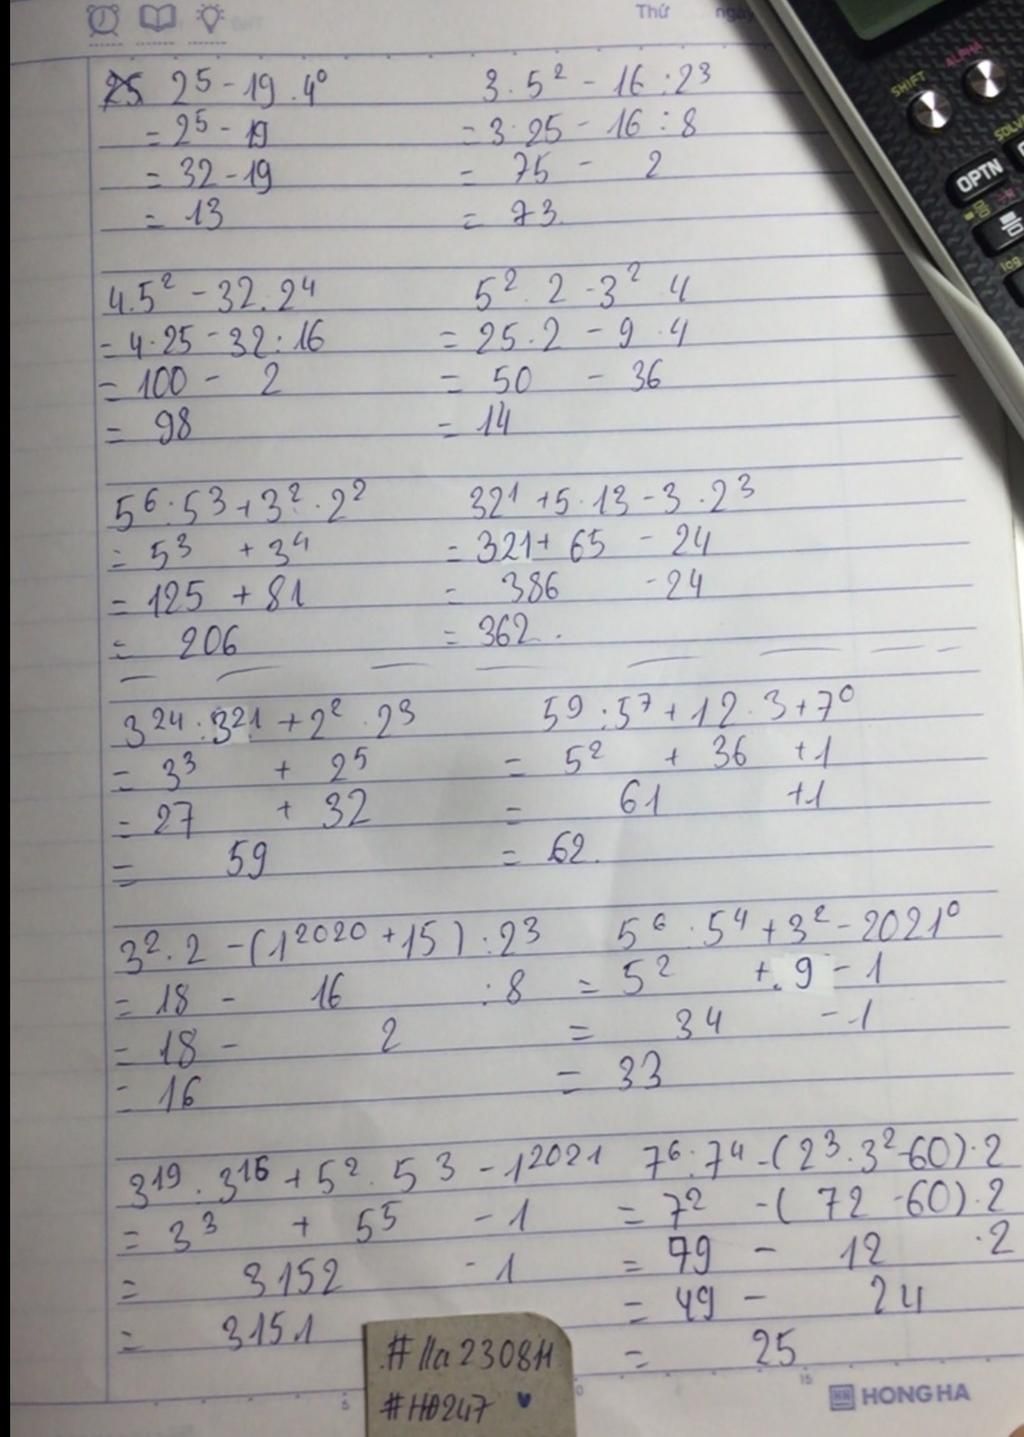 Thứ ngày
SHIFT ALPHA
SOLV
OPTN
log
25 2⁵ - 19 . 4⁰
= 2⁵ - 19
= 32 - 19
= 13
3 . 5² - 16 : 2³
= 3 . 25 - 16 : 8
= 75 - 2
= 73.
4 . 5² - 32 : 2⁴
= 4 . 25 - 32 : 16
= 100 - 2
= 98
5² . 2 - 3² . 4
= 25 . 2 - 9 . 4
= 50 - 36
= 14
5⁶ : 5³ + 3² . 2²
= 5³ + 3⁴
= 125 + 81
= 206
321 + 5 . 13 - 3 . 2³
= 321 + 65 - 24
= 386 - 24
= 362.
3²⁴ : 3²¹ + 2² . 2³
= 3³ + 2⁵
= 27 + 32
= 59
5⁹ : 5⁷ + 12 . 3 + 7⁰
= 5² + 36 + 1
= 61 + 1
= 62.
3² . 2 - (1²⁰²⁰ + 15) : 2³
= 18 - 16 : 8
= 18 - 2
= 16
5⁶ : 5⁴ + 3² - 2021⁰
= 5² + 9 - 1
= 34 - 1
= 33
3¹⁹ : 3¹⁶ + 5² . 5³ - 1²⁰²¹
= 3³ + 5⁵ - 1
= 3152 - 1
= 3151
7⁶ : 7⁴ - (2³ . 3² - 60) . 2
= 7² - (72 - 60) . 2
= 79 - 12 . 2
= 49 - 24
= 25
#lla2308H
#HD247
5 10 15
HONG HA